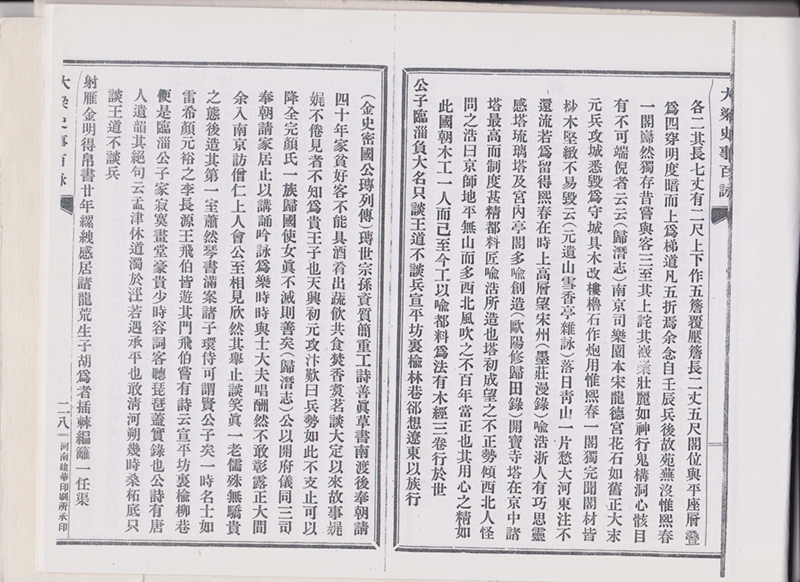 大梁史事百詠
各二其長七丈有二尺上下作五簷覆壓簷長二丈五尺閣位與平座層疊
爲四穿明度暗而上爲梯道凡五折焉余念自壬辰兵後故苑蕪沒惟熙春
一閣巋然獨存昔嘗與客三至其上詫其壯麗如神行鬼構洞心骸目
有不可端倪者云云(歸潛志)南京司樂園本宋龍德宮花石如舊正大末
元兵攻城悉毀爲守城具木改樓櫓石作炮用惟熙春一閣獨完聞閣材皆
杪木堅緻不易毀云(元遺山雪香亭雜詠)落日靑山一片愁大河東注不
還流若爲留得熙春在時上高層望宋州(墨莊漫錄)喩浩浙人有巧思靈
感塔琉璃塔及宮內亭閣多喩創造(歐陽修歸田錄)開寶寺塔在京中諸
塔最高而制度甚精都料匠喩浩所造也塔初成望之不正勢傾西北人怪
問之浩曰京師地平無山而多西北風吹之不百年當正也其用心之精如
此國朝木工一人而已至今工以喩都料爲法有木經三卷行於世
公子臨淄負大名只談王道不談兵宣平坊裏榆林巷卻想遼東以族行
(金史密國公璹列傳)璹世宗孫資質簡重工詩善眞草書南渡後奉朝請
四十年家貧好客不能具酒肴出蔬飲共食焚香煑茗談大定以來故事娓
娓不倦見者不知爲貴王子也天興初元攻汴歎曰兵勢如此不支止可以
降全完顏氏一族歸國使女眞不滅則善矣(歸潛志)公以開府儀同三司
奉朝請家居止以講誦吟詠爲樂時時與士大夫唱酬然不敢彰露正大間
余入南京訪僧仁上人會公至相見欣然其舉止談笑眞一老儒殊無驕貴
之態後造其第一室蕭然琴書滿案諸子環侍可謂賢公子矣一時名士如
雷希顏元裕之李長源王飛伯皆遊其門飛伯嘗有詩云宣平坊裏榆柳巷
便是臨淄公子家寂寞畫堂豪貴少時容詞客聽琵琶蓋實錄也公詩有唐
人遺韻其絕句云孟津休道濁於涇若遇承平也敢淸河朔幾時桑柘底只
談王道不談兵
射雁金明得帛書廿年縲絏感居諸龍荒生子胡爲者插棘編籬一任渠
大梁史事百詠
二八
河南建華印刷所承印